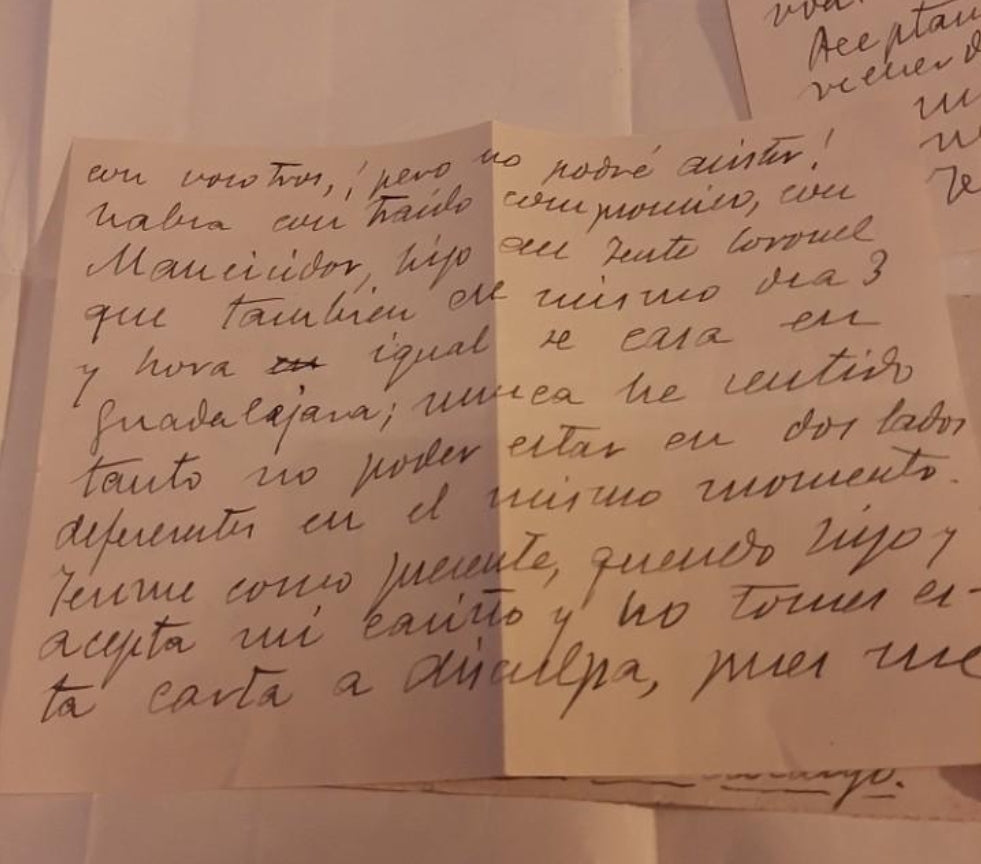 con vosotros, ¡pero no podré asistir!
habia contraido compromiso, con
Mancicidor, hijo del Tente Coronel
que tambien el mismo dia 3
y hora igual se casa en
Guadalajara; nunca he sentido
tanto no poder estar en dos lados
deferentes en el mismo momento.
Tenme como presente, querido hijo y
acepta mi cariño y no tomes es-
ta carta a disculpa, pues me
Aceptan